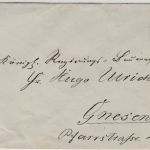 Königl. Regierungs-
Hr. Hugo Ulrich
Gnesen
Pfarrstraße